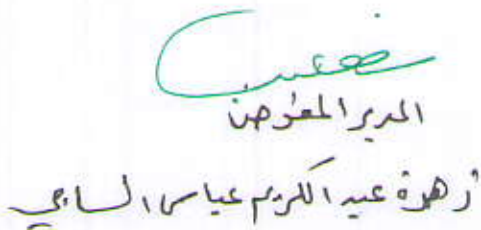 المدير المفوض
زهرة عبد الكريم عباس الساعي